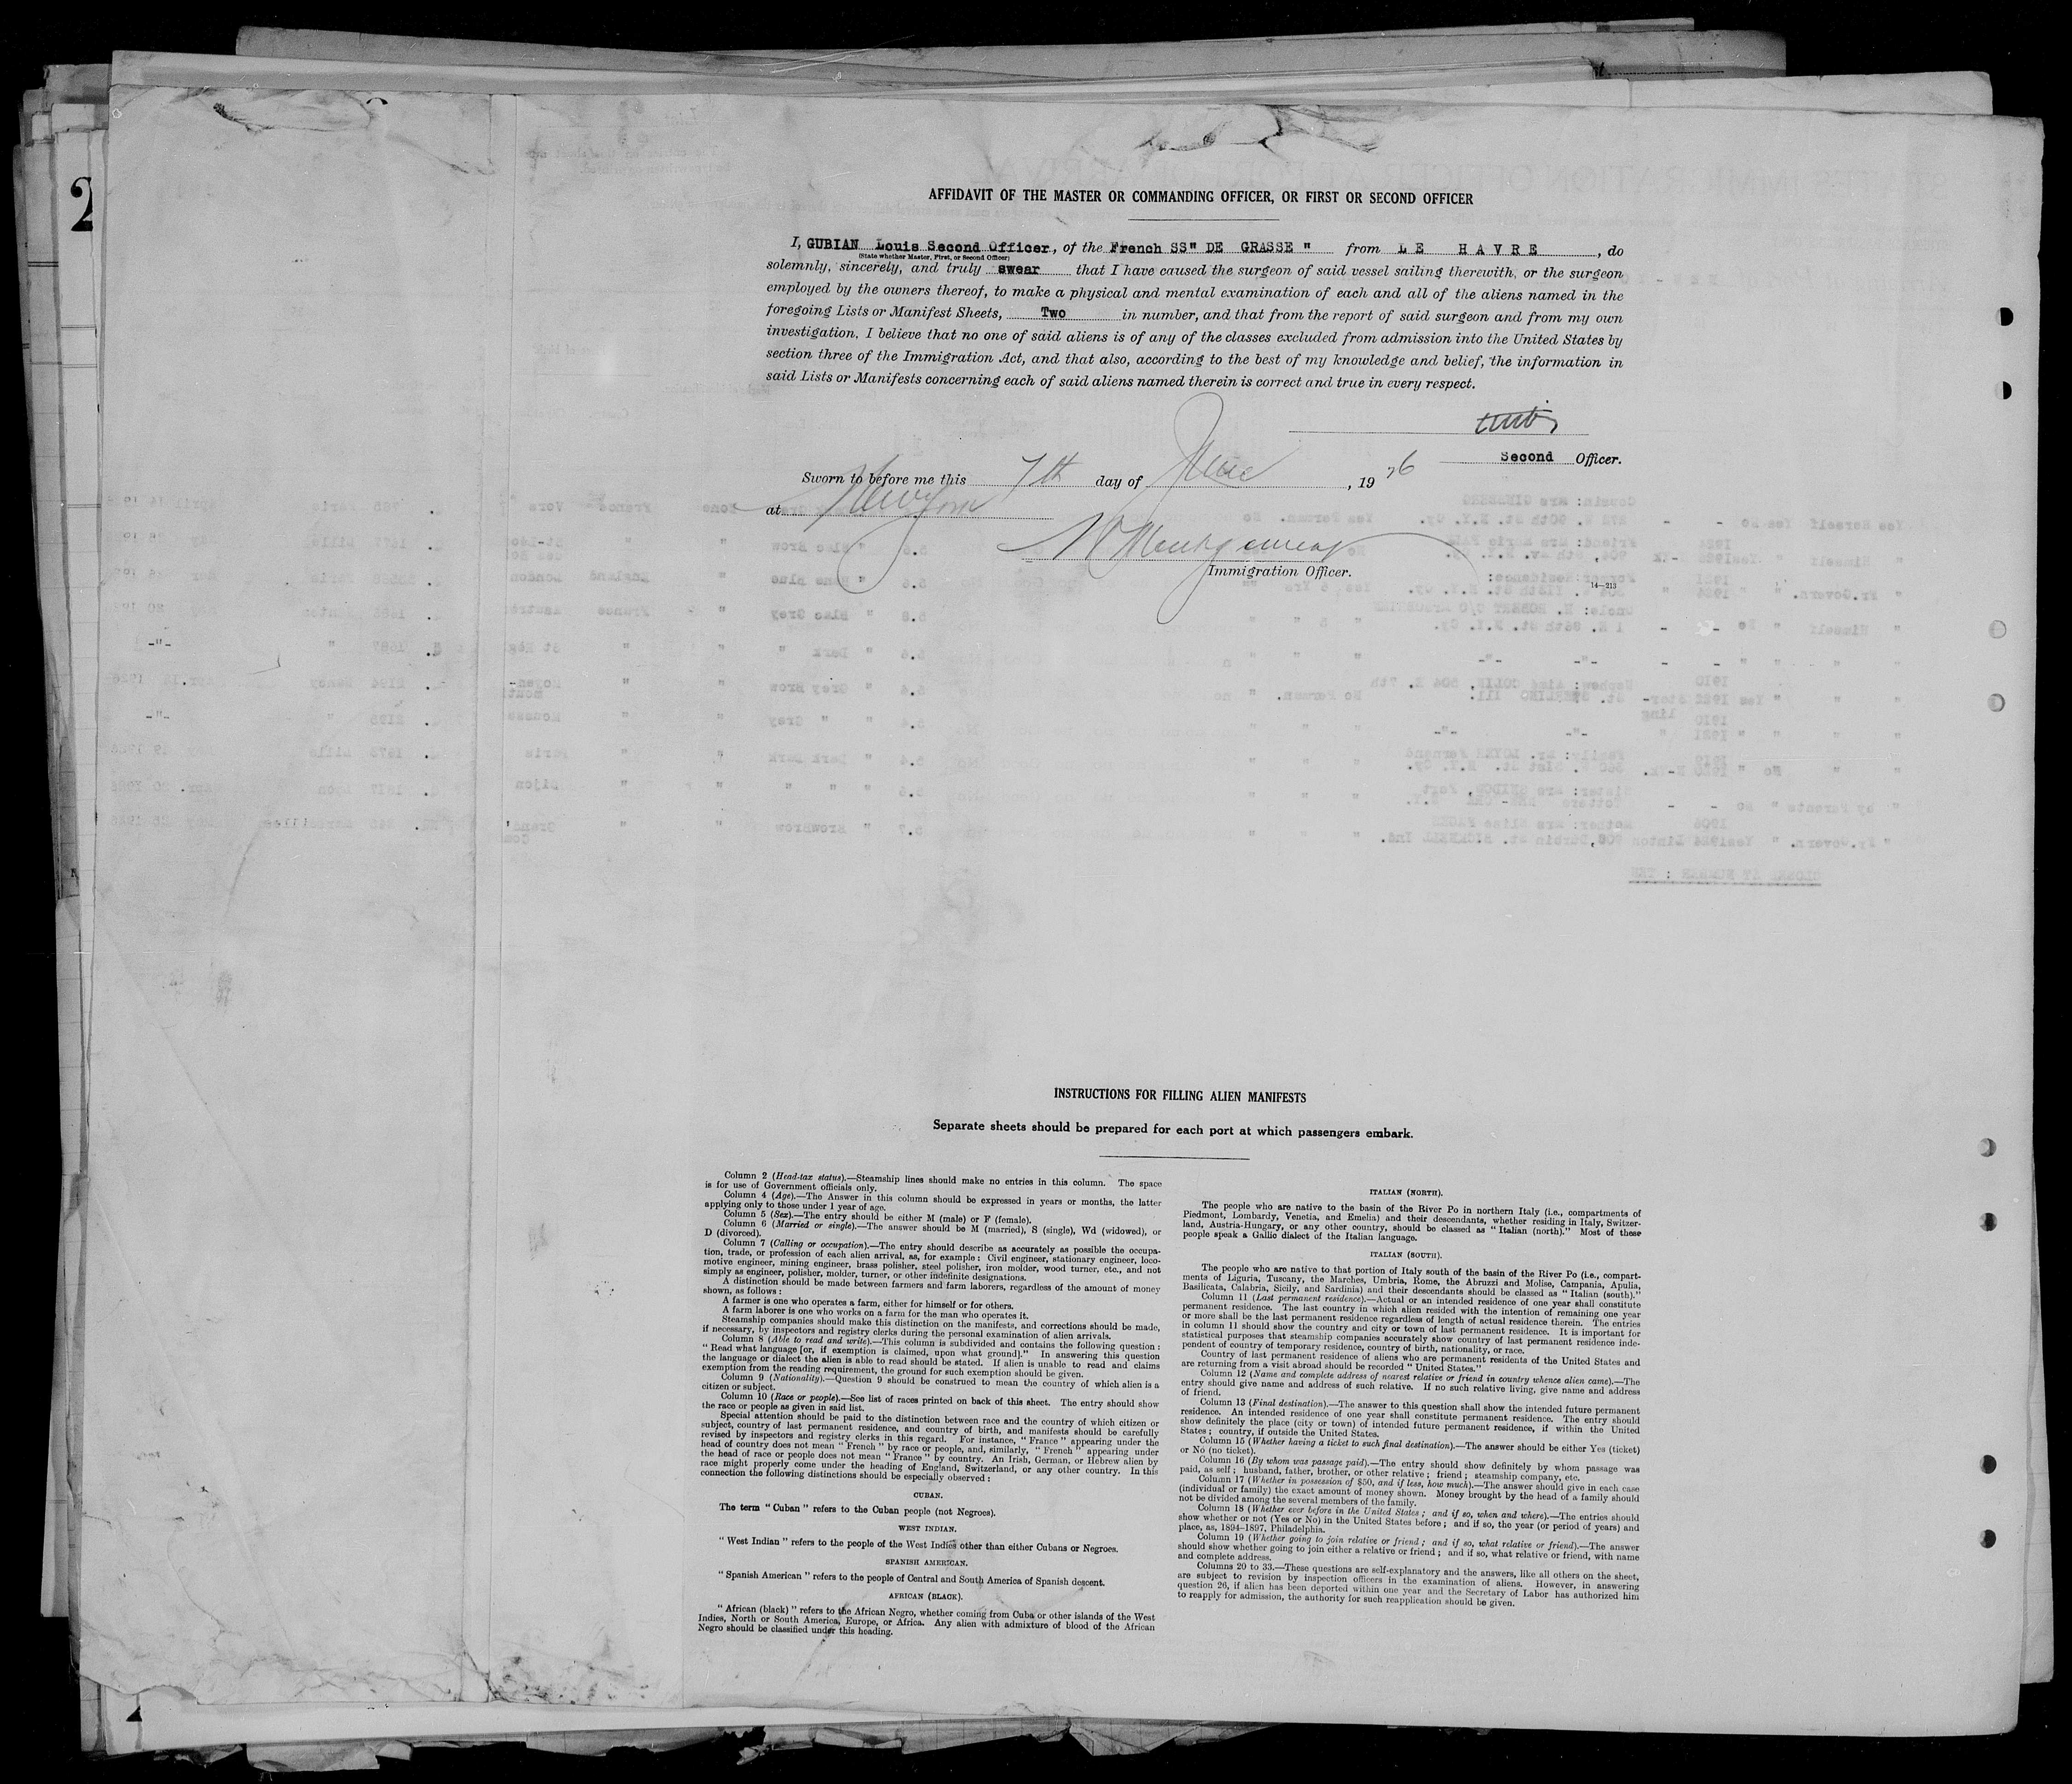 2
AFFIDAVIT OF THE MASTER OR COMMANDING OFFICER, OR FIRST OR SECOND OFFICER
I, GUBIAN Louis Second Officer, of the French SS" DE GRASSE " from LE HAVRE, do
(State whether Master, First, or Second Officer)
solemnly, sincerely, and truly swear that I have caused the surgeon of said vessel sailing therewith, or the surgeon
employed by the owners thereof, to make a physical and mental examination of each and all of the aliens named in the
foregoing Lists or Manifest Sheets, Two in number, and that from the report of said surgeon and from my own
investigation, I believe that no one of said aliens is of any of the classes excluded from admission into the United States by
section three of the Immigration Act, and that also, according to the best of my knowledge and belief, the information in
said Lists or Manifests concerning each of said aliens named therein is correct and true in every respect.
Second Officer.
Sworn to before me this 7th day of June, 1926
at New York
Immigration Officer.
14—213
INSTRUCTIONS FOR FILLING ALIEN MANIFESTS
Separate sheets should be prepared for each port at which passengers embark.
Column 2 (Head-tax status).—Steamship lines should make no entries in this column. The space
is for use of Government officials only.
Column 4 (Age).—The Answer in this column should be expressed in years or months, the latter
applying only to those under 1 year of age.
Column 5 (Sex).—The entry should be either M (male) or F (female).
Column 6 (Married or single).—The answer should be M (married), S (single), Wd (widowed), or
D (divorced).
Column 7 (Calling or occupation).—The entry should describe as accurately as possible the occupa-
tion, trade, or profession of each alien arrival, as, for example: Civil engineer, stationary engineer, loco-
motive engineer, mining engineer, brass polisher, steel polisher, iron molder, wood turner, etc., and not
simply as engineer, polisher, molder, turner, or other indefinite designations.
A distinction should be made between farmers and farm laborers, regardless of the amount of money
shown, as follows:
A farmer is one who operates a farm, either for himself or for others.
A farm laborer is one who works on a farm for the man who operates it.
Steamship companies should make this distinction on the manifests, and corrections should be made,
if necessary, by inspectors and registry clerks during the personal examination of alien arrivals.
Column 8 (Able to read and write).—This column is subdivided and contains the following question:
"Read what language [or, if exemption is claimed, upon what ground]." In answering this question
the language or dialect the alien is able to read should be stated. If alien is unable to read and claims
exemption from the reading requirement, the ground for such exemption should be given.
Column 9 (Nationality).—Question 9 should be construed to mean the country of which alien is a
citizen or subject.
Column 10 (Race or people).—See list of races printed on back of this sheet. The entry should show
the race or people as given in said list.
Special attention should be paid to the distinction between race and the country of which citizen or
subject, country of last permanent residence, and country of birth, and manifests should be carefully
revised by inspectors and registry clerks in this regard. For instance, "France" appearing under the
head of country does not mean "French" by race or people, and, similarly, "French" appearing under
the head of race or people does not mean "France" by country. An Irish, German, or Hebrew alien by
race might properly come under the heading of England, Switzerland, or any other country. In this
connection the following distinctions should be especially observed:
CUBAN.
The term "Cuban" refers to the Cuban people (not Negroes).
WEST INDIAN.
"West Indian" refers to the people of the West Indies other than either Cubans or Negroes.
SPANISH AMERICAN.
"Spanish American" refers to the people of Central and South America of Spanish descent.
AFRICAN (BLACK).
"African (black)" refers to the African Negro, whether coming from Cuba or other islands of the West
Indies, North or South America, Europe, or Africa. Any alien with admixture of blood of the African
Negro should be classified under this heading.
ITALIAN (NORTH).
The people who are native to the basin of the River Po in northern Italy (i.e., compartments of
Piedmont, Lombardy, Venetia, and Emelia) and their descendants, whether residing in Italy, Switzer-
land, Austria-Hungary, or any other country, should be classed as "Italian (north)." Most of these
people speak a Gallic dialect of the Italian language.
ITALIAN (SOUTH).
The people who are native to that portion of Italy south of the basin of the River Po (i.e., compart-
ments of Liguria, Tuscany, the Marches, Umbria, Rome, the Abruzzi and Molise, Campania, Apulia,
Basilicata, Calabria, Sicily, and Sardinia) and their descendants should be classed as "Italian (south)."
Column 11 (Last permanent residence).—Actual or an intended residence of one year shall constitute
permanent residence. The last country in which alien resided with the intention of remaining one year
or more shall be the last permanent residence regardless of length of actual residence therein. The entries
in column 11 should show the country and city or town of last permanent residence. It is important for
statistical purposes that steamship companies accurately show country of last permanent residence inde-
pendent of country of temporary residence, country of birth, nationality, or race.
Country of last permanent residence of aliens who are permanent residents of the United States and
are returning from a visit abroad should be recorded "United States."
Column 12 (Name and complete address of nearest relative or friend in country whence alien came).—The
entry should give name and address of such relative. If no such relative living, give name and address
of friend.
Column 13 (Final destination).—The answer to this question shall show the intended future permanent
residence. An intended residence of one year shall constitute permanent residence. The entry should
show definitely the place (city or town) of intended future permanent residence, if within the United
States; country, if outside the United States.
Column 15 (Whether having a ticket to such final destination).—The answer should be either Yes (ticket)
or No (no ticket).
Column 16 (By whom was passage paid).—The entry should show definitely by whom passage was
paid, as self; husband, father, brother, or other relative; friend; steamship company, etc.
Column 17 (Whether in possession of $50, and if less, how much).—The answer should give in each case
(individual or family) the exact amount of money shown. Money brought by the head of a family should
not be divided among the several members of the family.
Column 18 (Whether ever before in the United States; and if so, when and where).—The entries should
show whether or not (Yes or No) in the United States before; and if so, the year (or period of years) and
place, as, 1894–1897, Philadelphia.
Column 19 (Whether going to join relative or friend; and if so, what relative or friend).—The answer
should show whether going to join either a relative or friend; and if so, what relative or friend, with name
and complete address.
Columns 20 to 33.—These questions are self-explanatory and the answers, like all others on the sheet,
are subject to revision by inspection officers in the examination of aliens. However, in answering
question 26, if alien has been deported within one year and the Secretary of Labor has authorized him
to reapply for admission, the authority for such reapplication should be given.